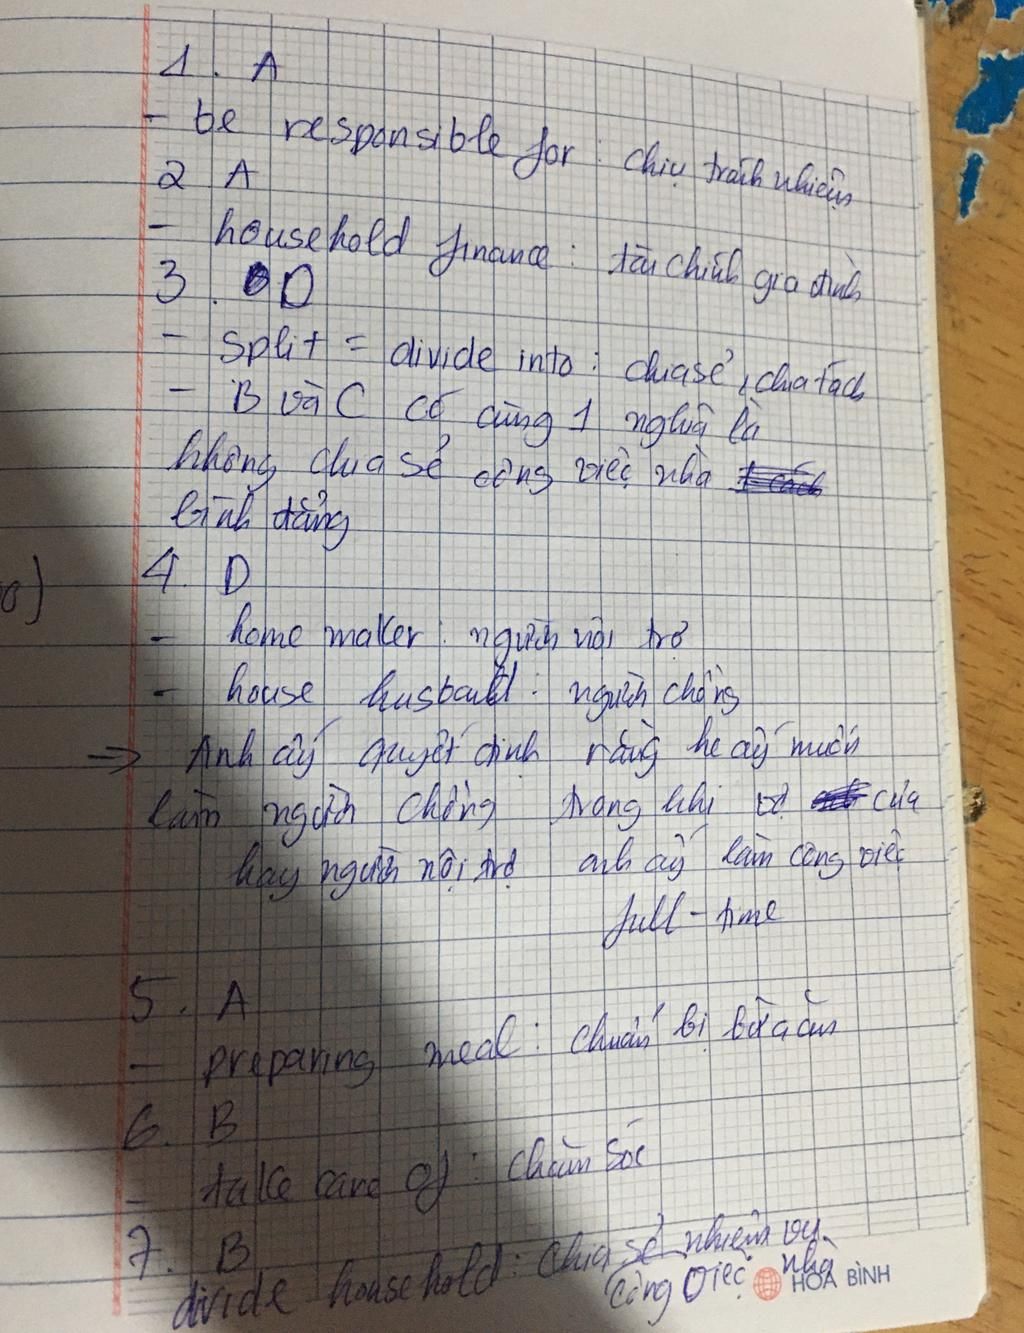 1. A
- be responsible for : chịu trách nhiệm
2 A
- household finance : tài chính gia đình
3. D
- split = divide into : chia sẻ, chia tách
- B và C có cùng 1 nghĩa là
không chia sẻ công việc nhà
bình đẳng
4. D
- home maker : người nội trợ
- house husband : người chồng
→ Anh ấy quyết định rằng he ấy muốn
làm người chồng trong khi vợ của
hay người nội trợ anh ấy làm công việc
full-time
5. A
- preparing meal : chuẩn bị bữa ăn
6. B
- take care of : chăm sóc
7. B
divide household : chia sẻ nhiệm vụ
công việc nhà
HÒA BÌNH